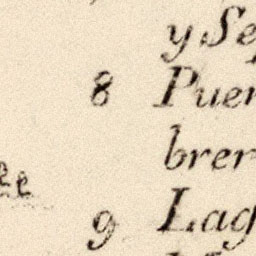 y Se
8 Puer
brer
9 Lag